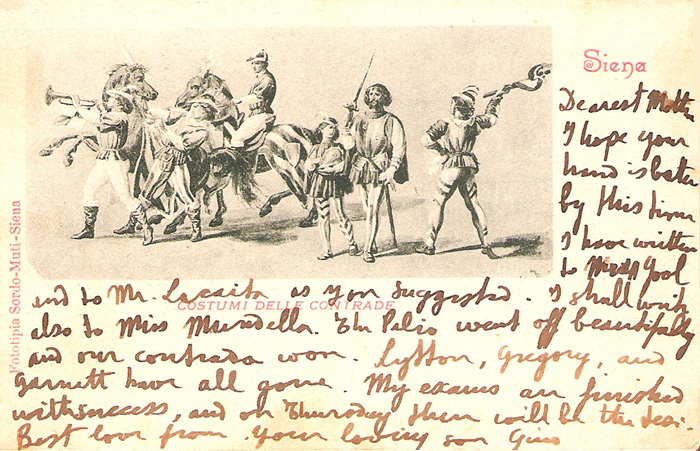 Siena
Dearest Mother
I hope your
hand is better
by this time
I have written
to
and to Mr. Lacaita as you suggested. I shall write
COSTUMI DELLE CONTRADE
also to Miss Mundella. The Palio went off beautifully
and our contrada won. Lytton, Gregory, and
Garnett have all gone. My exams are finished
with success, and on Thursday there will be the
Best love from your loving son Gino
Fototipia Sordo-Muti-Siena